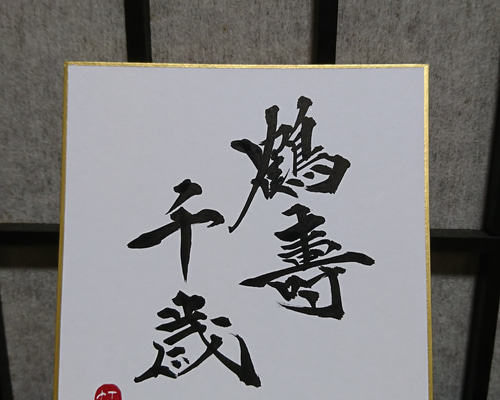 鶴壽
千歳